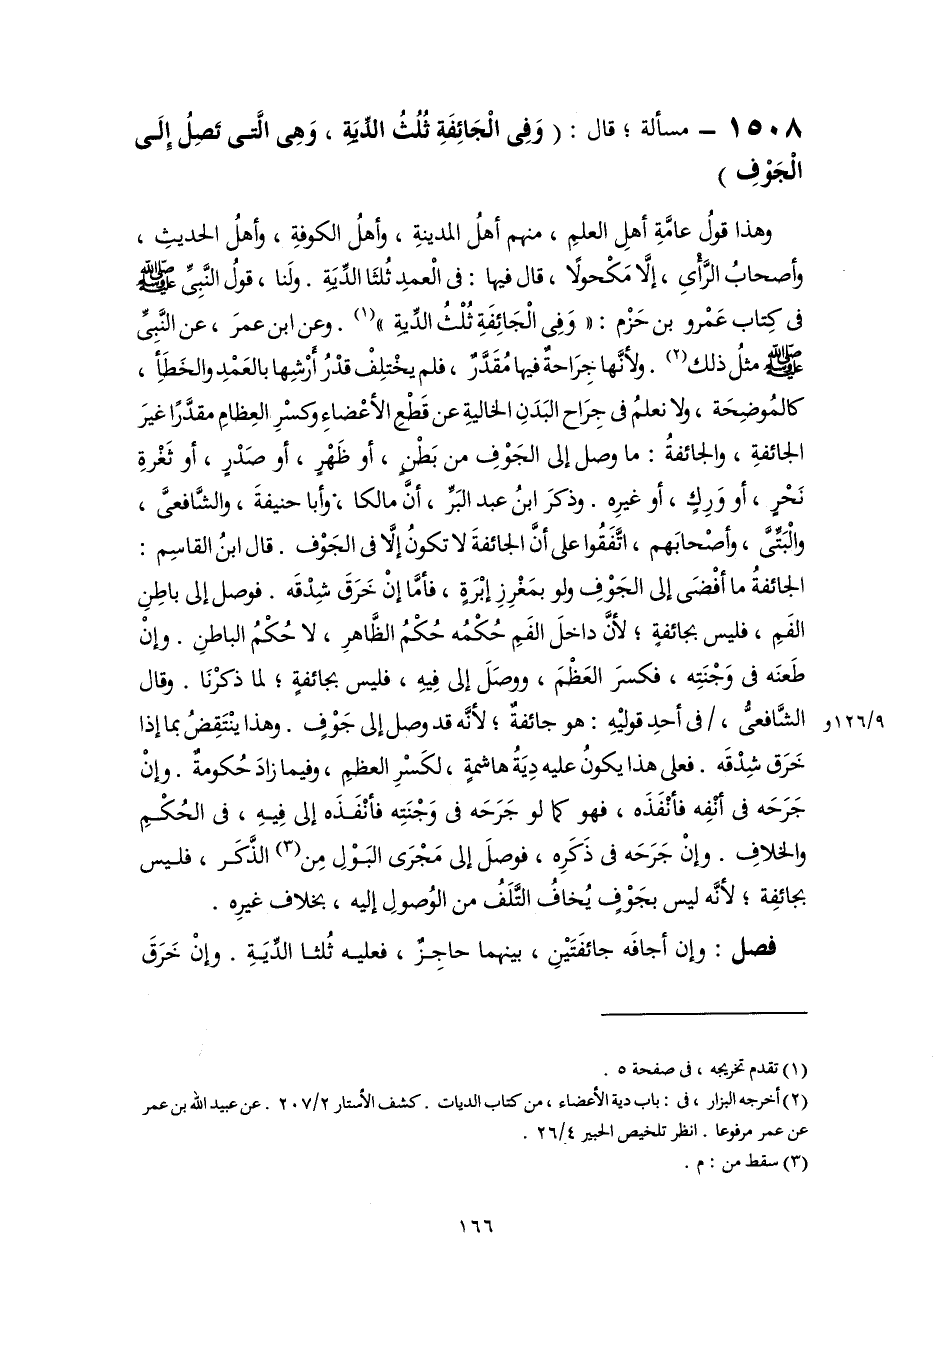 ١٥٠٨ – مسألة ؛ قال : ( وَفِى الْجَائِفَةِ ثُلُثُ الدِّيَةِ ، وَهِى الَّتِى تَصِلُ إِلَى
الْجَوْفِ )
وهذا قولُ عامَّةِ أهلِ العلمِ ، منهم أهلُ المدينةِ ، وأهلُ الكوفةِ ، وأهلُ الحديثِ ،
وأصحابُ الرَّأْىِ ، إلَّا مَكْحولًا ، قال فيها : فى الْعمدِ ثُلُثَا الدِّيَةِ . ولَنا ، قولُ النَّبِىِّ ﷺ
فى كِتابِ عَمْرِو بنِ حَزْمٍ : « وَفِى الْجَائِفَةِ ثُلْثُ الدِّيةِ »(١) . وعن ابنِ عمرَ ، عن النَّبِىِّ
ﷺ مثلُ ذلك(٢) . ولأنَّها جِراحةٌ فيها مُقَدَّرٌ ، فلم يخْتلِفْ قدْرُ أَرْشِها بالعَمْدِ والخَطَأِ ،
كالمُوضِحَة ، ولا نعلمُ فى جِراحِ البَدَنِ الخاليةِ عن قَطْعِ الأعْضاءِ وكسْرِ العِظامِ مقدَّرًا غيرَ
الجائفةِ ، والجائفةُ : ما وصل إلى الجَوْفِ من بَطْنٍ ، أو ظَهْرٍ ، أو صَدْرٍ ، أو ثَغْرةِ
نَحْرٍ ، أو وَرِكٍ ، أو غيرِه . وذكرَ ابنُ عبد البَرِّ ، أنَّ مالكا ، وأبا حنيفةَ ، والشَّافعىَّ ،
والْبَتِّىَّ ، وأصْحابَهم ، اتَّفَقُوا على أنَّ الجائفةَ لا تكونُ إلَّا فى الجَوْف . قال ابنُ القاسِم :
الجائفةُ ما أفْضَى إلى الجَوْفِ ولو بمَغْرِزِ إبْرَةٍ ، فأمَّا إنْ خَرَقَ شِدْقَه . فوصل إلى باطِنِ
الفَمِ ، فليس بجائفةٍ ؛ لأنَّ داخلَ الفَمِ حُكْمُه حُكْمُ الظَّاهرِ ، لا حُكْمُ الباطنِ . وإنْ
طَعنَه فى وَجْنَتِه ، فكسرَ العَظْمَ ، ووصَلَ إلى فِيهِ ، فليس بجائفةٍ ؛ لما ذكرْنَا . وقال
الشَّافعىُّ ، / فى أحدِ قوليْهِ : هو جائفةٌ ؛ لأنَّه قد وصل إلى جَوْفٍ . وهذا ينْتَقِضُ بما إذا ١٢٦/٩و
خَرَق شِدْقَه . فعلى هذا يكونُ عليه دِيَةُ هاشمةٍ ، لكَسْرِ العظمِ ، وفيما زادَ حُكومةٌ . وإنْ
جَرَحَه فى أنْفِه فأنْفَذَه ، فهو كما لو جَرَحَه فى وَجْنَتِه فأنْفَـذَه إلى فِيـهِ ، فى الحُكْـمِ
والخلافِ . وإنْ جَرَحَه فى ذَكَرِه ، فوصلَ إلى مَجْرَى البَـوْلِ مِن(٣) الذَّكَـر ، فلـيس
بجائفِة ؛ لأنَّه ليس بجَوْفٍ يُخافُ التَّلَفُ من الوُصولِ إليه ، بخلاف غيرِه .
فصل : وإن أجافَه جائفَتَيْنِ ، بينهما حاجِـزٌ ، فعليـه ثُلثـا الدِّيَـةِ . وإنْ خَرَقَ
(١) تقدم تخريجه ، فى صفحة ٥ .
(٢) أخرجه البزار ، فى : باب دية الأعضاء ، من كتاب الديات . كشف الأستار ٢٠٧/٢ . عن عبيد الله بن عمر
عن عمر مرفوعا . انظر تلخيص الحبير ٢٦/٤ .
(٣) سقط من : م .
١٦٦